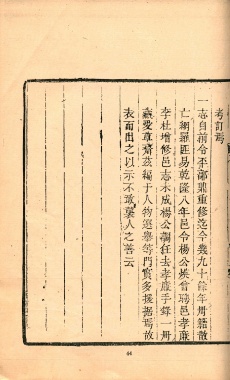 考訂焉
一志自前令平部鼎重修迄今幾九十餘年卅籍散
亡網羅匪易乾隆八年邑令楊公燝曾聘邑孝廉
李杜增修邑志未成楊公調任去孝廉手錄一卅
藏愛韋齋茲編于人物選舉等門實多援据焉故
表而出之以示不敢掠人之善云
44